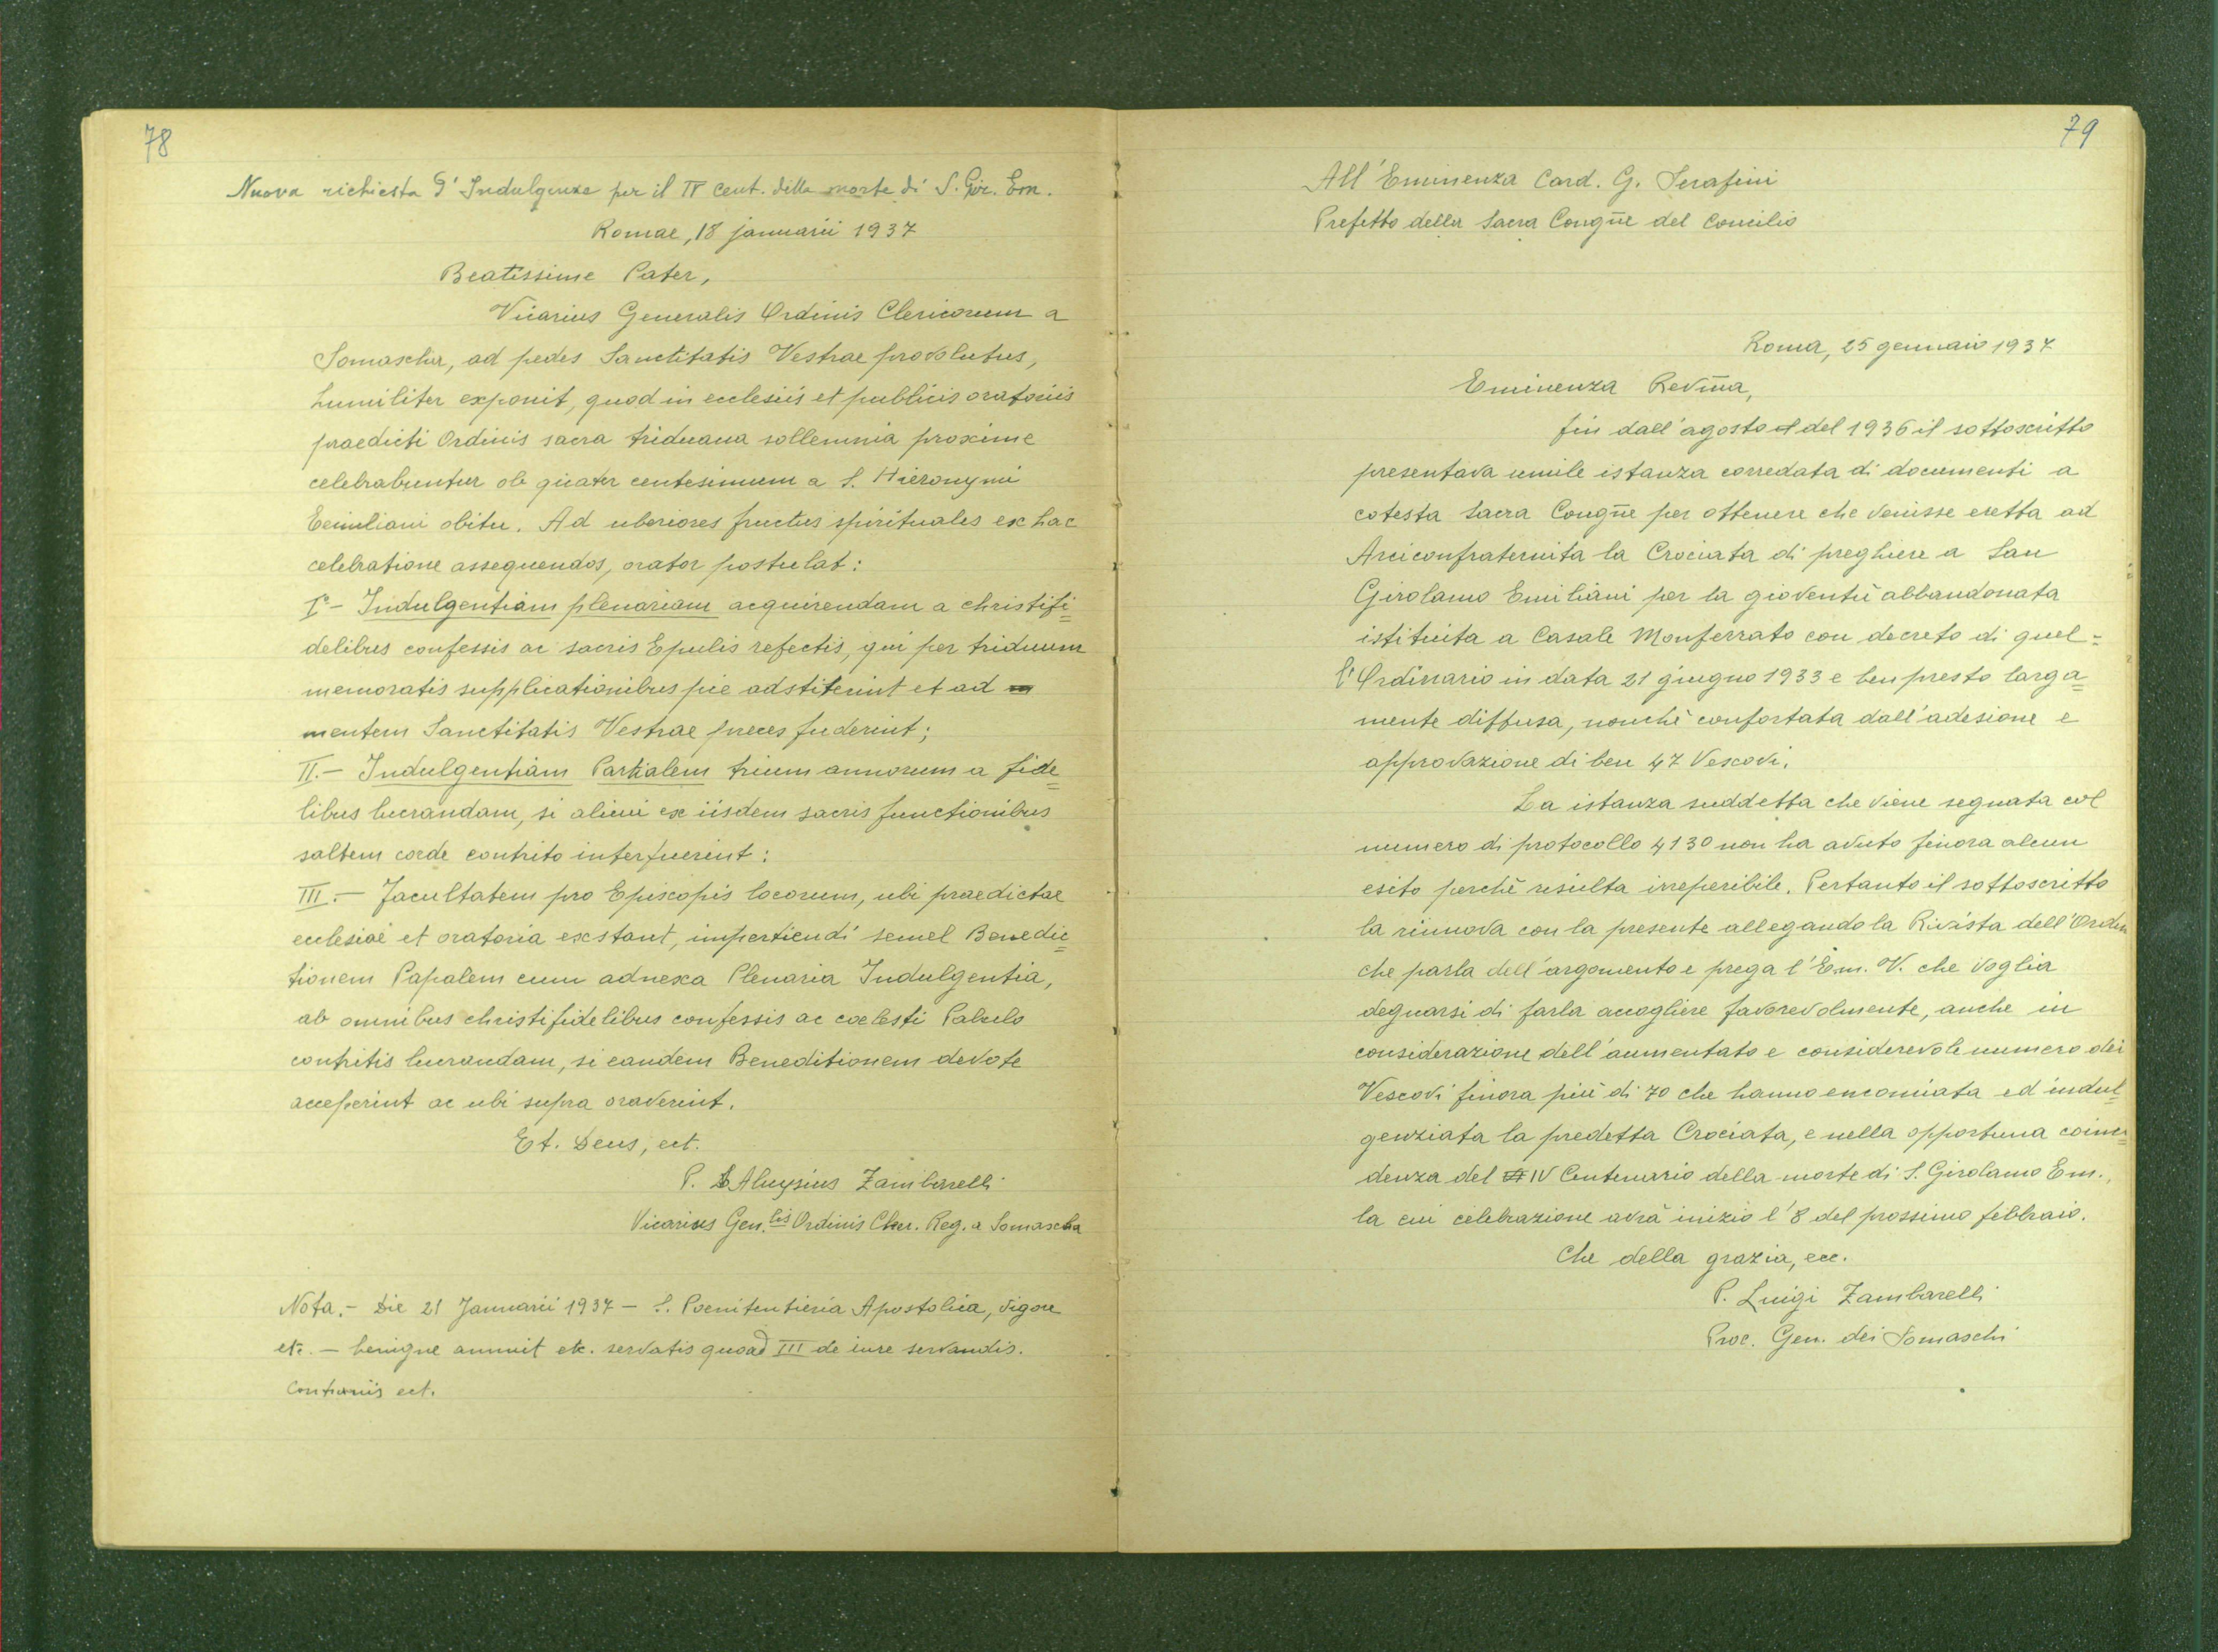 78
Nuova richiesta d'Indulgenze per il IV cent. della morte di S. Gir. Em.
Romae, 18 januarii 1937
Beatissime Pater,
Vicarius Generalis Ordinis Clericorum a
Somascha, ad pedes Sanctitatis Vestrae provolutus,
humiliter exponit, quod in ecclesiis et publicis oratoriis
praedicti Ordinis sacra triduana sollemnia proxime
celebrabuntur ob quater centesimum a S. Hieronymi
Eemiliani obitu. Ad uberiores fructus spirituales ex hac
celebratione assequendos, orator postulat:
I° - Indulgentiam plenariam acquirendam a christifi=
delibus confessis ac sacris Epulis refectis, qui per triduum
memoratis supplicationibus pie adstiterint et ad m
mentem Sanctitatis Vestrae preces fuderint;
II. - Indulgentiam Partialem trium annorum a fide=
libus lucrandam, si alicui ex iisdem sacris functionibus
saltem corde contrito interfuerint:
III. - Facultatem pro Episcopis locorum, ubi praedictae
ecclesiae et oratoria exstant, impertiendi semel Benedic=
tionem Papalem cum adnexa Plenaria Indulgentia,
ab omnibus christifidelibus confessis ac coelesti Pabulo
contritis lucrandam, si eandem Beneditionem devote
acceperint ac ubi supra oraverint.
Et. Deus, ect.
P. Aluysius Zambarelli
Vicarius Gen.lis Ordinis Cler. Reg. a Somascha
Nota. - Die 21 Januarii 1937 - S. Poenitentieria Apostolica, vigore
etc. - benigne annuit etc. servatis quoad III de iure servandis.
Contrariis ect.
79
All'Eminenza Card. G. Serafini
Prefetto della Sacra Congñe del Concilio
Roma, 25 gennaio 1937
Eminenza Revm̃a,
fin dall'agosto del 1936 il sottoscritto
presentava umile istanza corredata di documenti a
cotesta Sacra Congñe per ottenere che venisse eretta ad
Arciconfraternita la Crociata di preghiere a San
Girolamo Emiliani per la gioventù abbandonata
istituita a Casale Monferrato con decreto di quel=
l'Ordinario in data 21 giugno 1933 e ben presto larga=
mente diffusa, nonchè confortata dall'adesione e
approvazione di ben 47 Vescovi.
La istanza suddetta che viene segnata col
numero di protocollo 4130 non ha avuto finora alcun
esito perchè risulta irreperibile. Pertanto il sottoscritto
la rinnova con la presente allegando la Rivista dell'Orden
che parla dell'argomento e prega l'Em. V. che voglia
degnarsi di farla accogliere favorevolmente, anche in
considerazione dell'aumentato e considerevole numero dei
Vescovi finora più di 70 che hanno encomiata ed indul=
genziata la predetta Crociata, e nella opportuna coinci=
denza del IV Centenario della morte di S. Girolamo Em.,
la cui celebrazione avrà inizio l'8 del prossimo febbraio.
Che della grazia, ecc.
P. Luigi Zambarelli
Proc. Gen. dei Somaschi